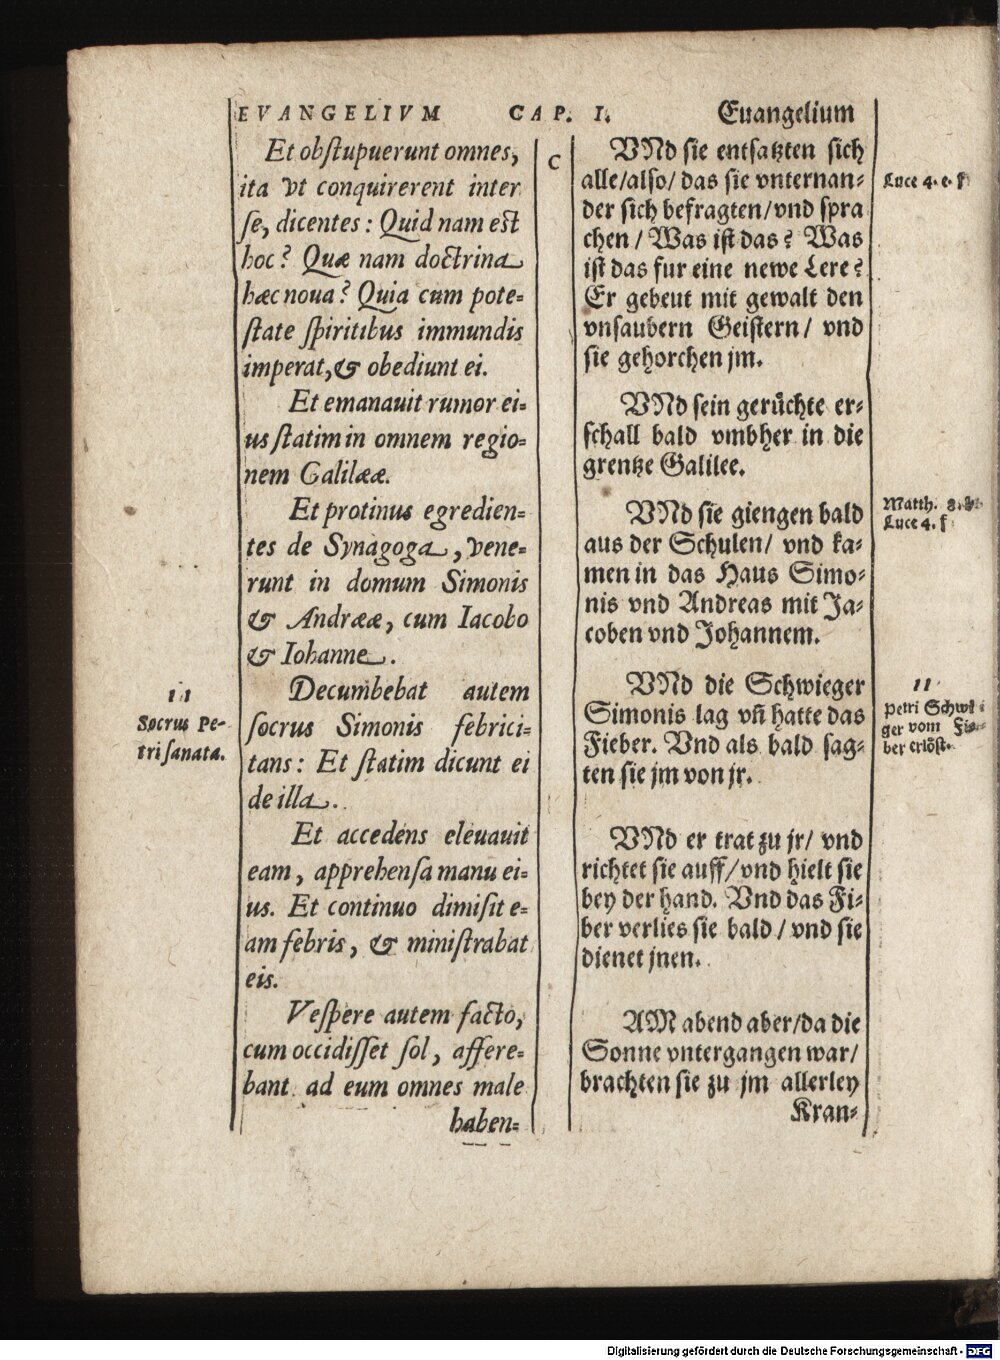 EVANGELIVM CAP. I. Euangelium
Et obstupuerunt omnes,
ita vt conquirerent inter
se, dicentes: Quid nam est
hoc? Quæ nam doctrina
hæc noua? Quia cum pote=
state spiritibus immundis
imperat, & obediunt ei.
Et emanauit rumor ei=
us statim in omnem regio=
nem Galilææ.
Et protinus egredien=
tes de Synagoga, vene=
runt in domum Simonis
& Andrææ, cum Iacobo
& Iohanne.
11
Socrus Pe-
tri sanata.
Decumbebat autem
socrus Simonis febrici=
tans: Et statim dicunt ei
de illa.
Et accedens eleuauit
eam, apprehensa manu ei=
us. Et continuo dimisit e=
am febris, & ministrabat
eis.
Vespere autem facto,
cum occidisset sol, affere=
bant ad eum omnes male
haben=
C
VNd sie entsatzten sich
alle/also/ das sie vnternan=
der sich befragten/vnd spra
chen/ Was ist das? Was
ist das fur eine newe Lere?
Er gebeut mit gewalt den
vnsaubern Geistern/ vnd
sie gehorchen jm.
Luce 4. e. f
VNd sein gerůchte er=
schall bald vmbher in die
grentze Galilee.
VNd sie giengen bald
aus der Schulen/ vnd ka=
men in das Haus Simo=
nis vnd Andreas mit Ja=
coben vnd Johannem.
Matth. 8.
Luce 4. f
VNd die Schwieger
Simonis lag vñ hatte das
Fieber. Vnd als bald sag=
ten sie jm von jr.
11
Petri Schwi
ger vom Fie=
ber erlöst.
VNd er trat zu jr/ vnd
richtet sie auff/vnd hielt sie
bey der hand. Vnd das Fi=
ber verlies sie bald/ vnd sie
dienet jnen.
AM abend aber/da die
Sonne vntergangen war/
brachten sie zu jm allerley
Kran=
Digitalisierung gefördert durch die Deutsche Forschungsgemeinschaft - DFG